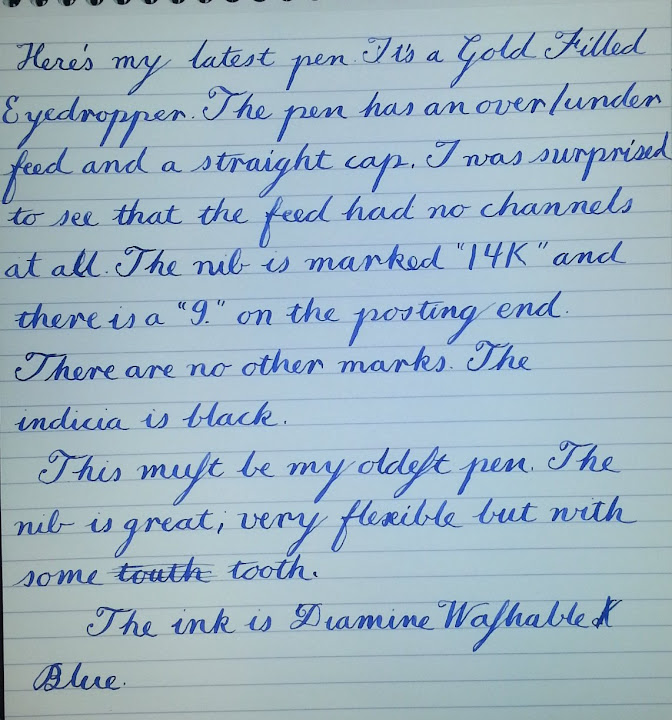 Here's my latest pen. It's a Gold Filled
Eyedropper. The pen has an over/under
feed and a straight cap. I was surprised
to see that the feed had no channels
at all. The nib is marked "14K" and
there is a "9." on the posting end.
There are no other marks. The
indicia is black.
This muſt be my oldeſt pen. The
nib is great; very flexible but with
some touth tooth.
The ink is Diamine Waſhable
Blue.